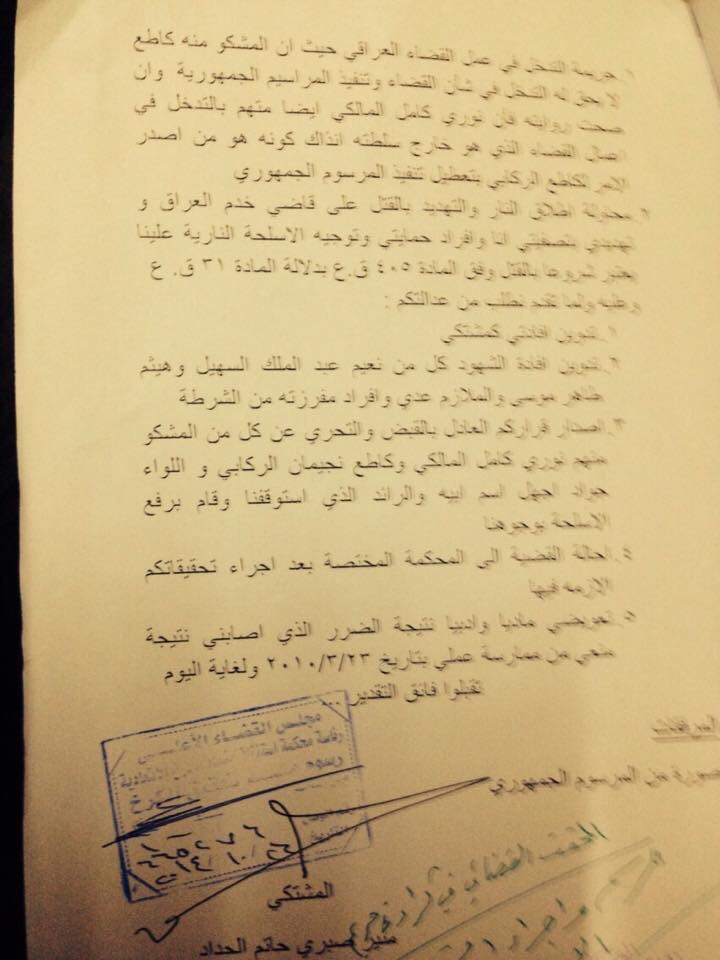 ١. جريمة التدخل في عمل القضاء العراقي حيث ان المشكو منه كاطع
لا يحق له التدخل في شأن القضاء وتنفيذ المراسيم الجمهورية وان
صحت روايته فأن نوري كامل المالكي ايضا متهم بالتدخل في
اعمال القضاء الذي هو خارج سلطته انذاك كونه هو من اصدر
الامر لكاطع الركابي بتعطيل تنفيذ المرسوم الجمهوري
٢. محاولة اطلاق النار والتهديد بالقتل على قاضي خدم العراق و
تهديدي بتصفيتي انا وافراد حمايتي وتوجيه الاسلحة النارية علينا
يعتبر شروعا بالقتل وفق المادة ٤٠٥ ق.ع بدلالة المادة ٣١ ق. ع
وعليه ولما تقدم نطلب من عدالتكم :
١. تدوين افادتي كمشتكي
٢. تدوين افادة الشهود كل من نعيم عبد الملك السهيل وهيثم
ظاهر موسى والملازم عدي وافراد مفرزته من الشرطة
٣. اصدار قراركم العادل بالقبض والتحري عن كل من المشكو
منهم نوري كامل المالكي وكاطع نجيمان الركابي و اللواء
جواد اجهل اسم ابيه والرائد الذي استوقفنا وقام برفع
الاسلحة بوجوهنا
٤. احالة القضية الى المحكمة المختصة بعد اجراء تحقيقاتكم
الازمه فيها
٥. تعويضي ماديا وادبيا نتيجة الضرر الذي اصابني نتيجة
منعي من ممارسة عملي بتاريخ ٢٠١٠/٣/٢٣ ولغاية اليوم
تقبلوا فائق التقدير ...
مجلس القضاء الأعلى
رئاسة محكمة استئناف الاتحادية
رسوم الكرخ
المرفقات
صورة من المرسوم الجمهوري
٢٠١٤/١٠/٢٦
المشتكي
منير صبري حاتم الحداد